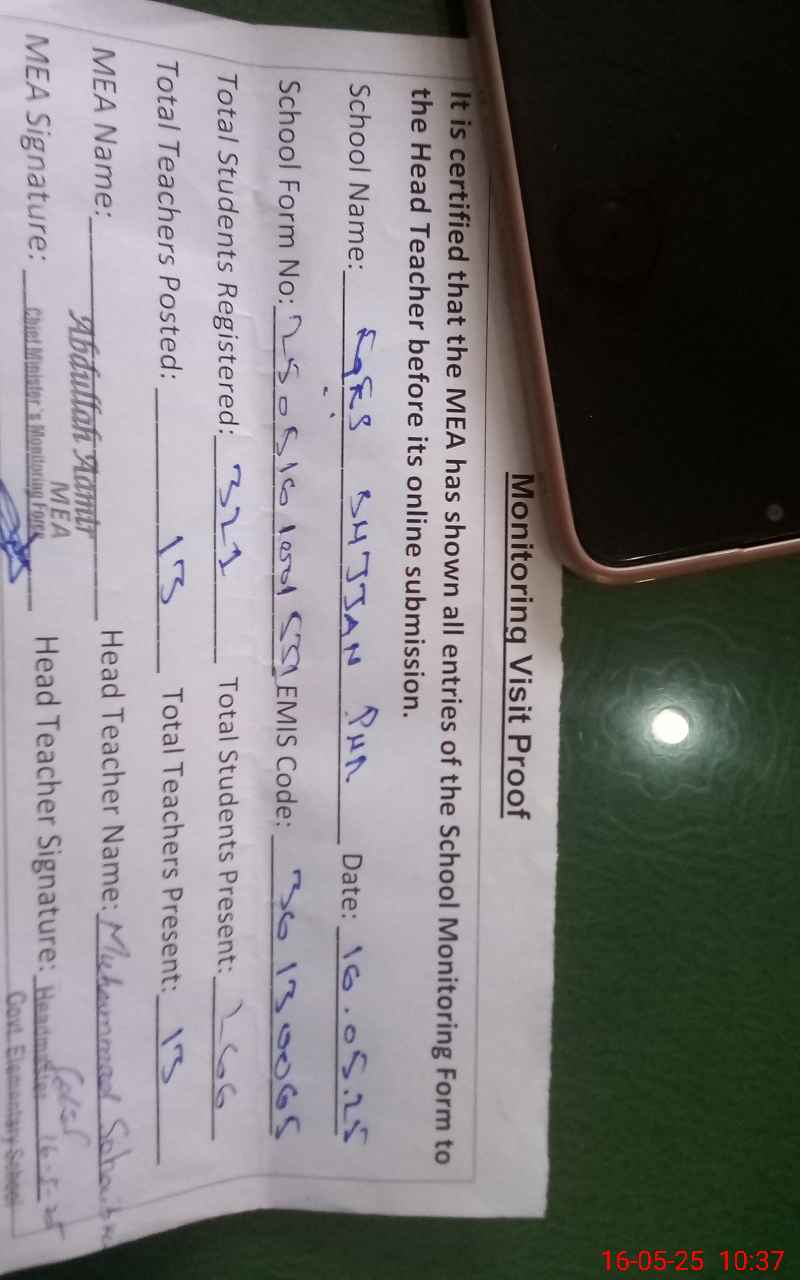 Monitoring Visit Proof
It is certified that the MEA has shown all entries of the School Monitoring Form to
the Head Teacher before its online submission.
School Name: BHJJAN Date: 16.05.25
School Form No: EMIS Code: 36130065
Total Students Registered: 321 Total Students Present: 266
Total Teachers Posted: 13 Total Teachers Present: 13
MEA Name: Abdullah Head Teacher Name: Muhammad
MEA
MEA Signature: Chief Minister's Monitoring Force Head Teacher Signature: Headmaster 16-5-25
Govt. Elementary School
16-05-25 10:37